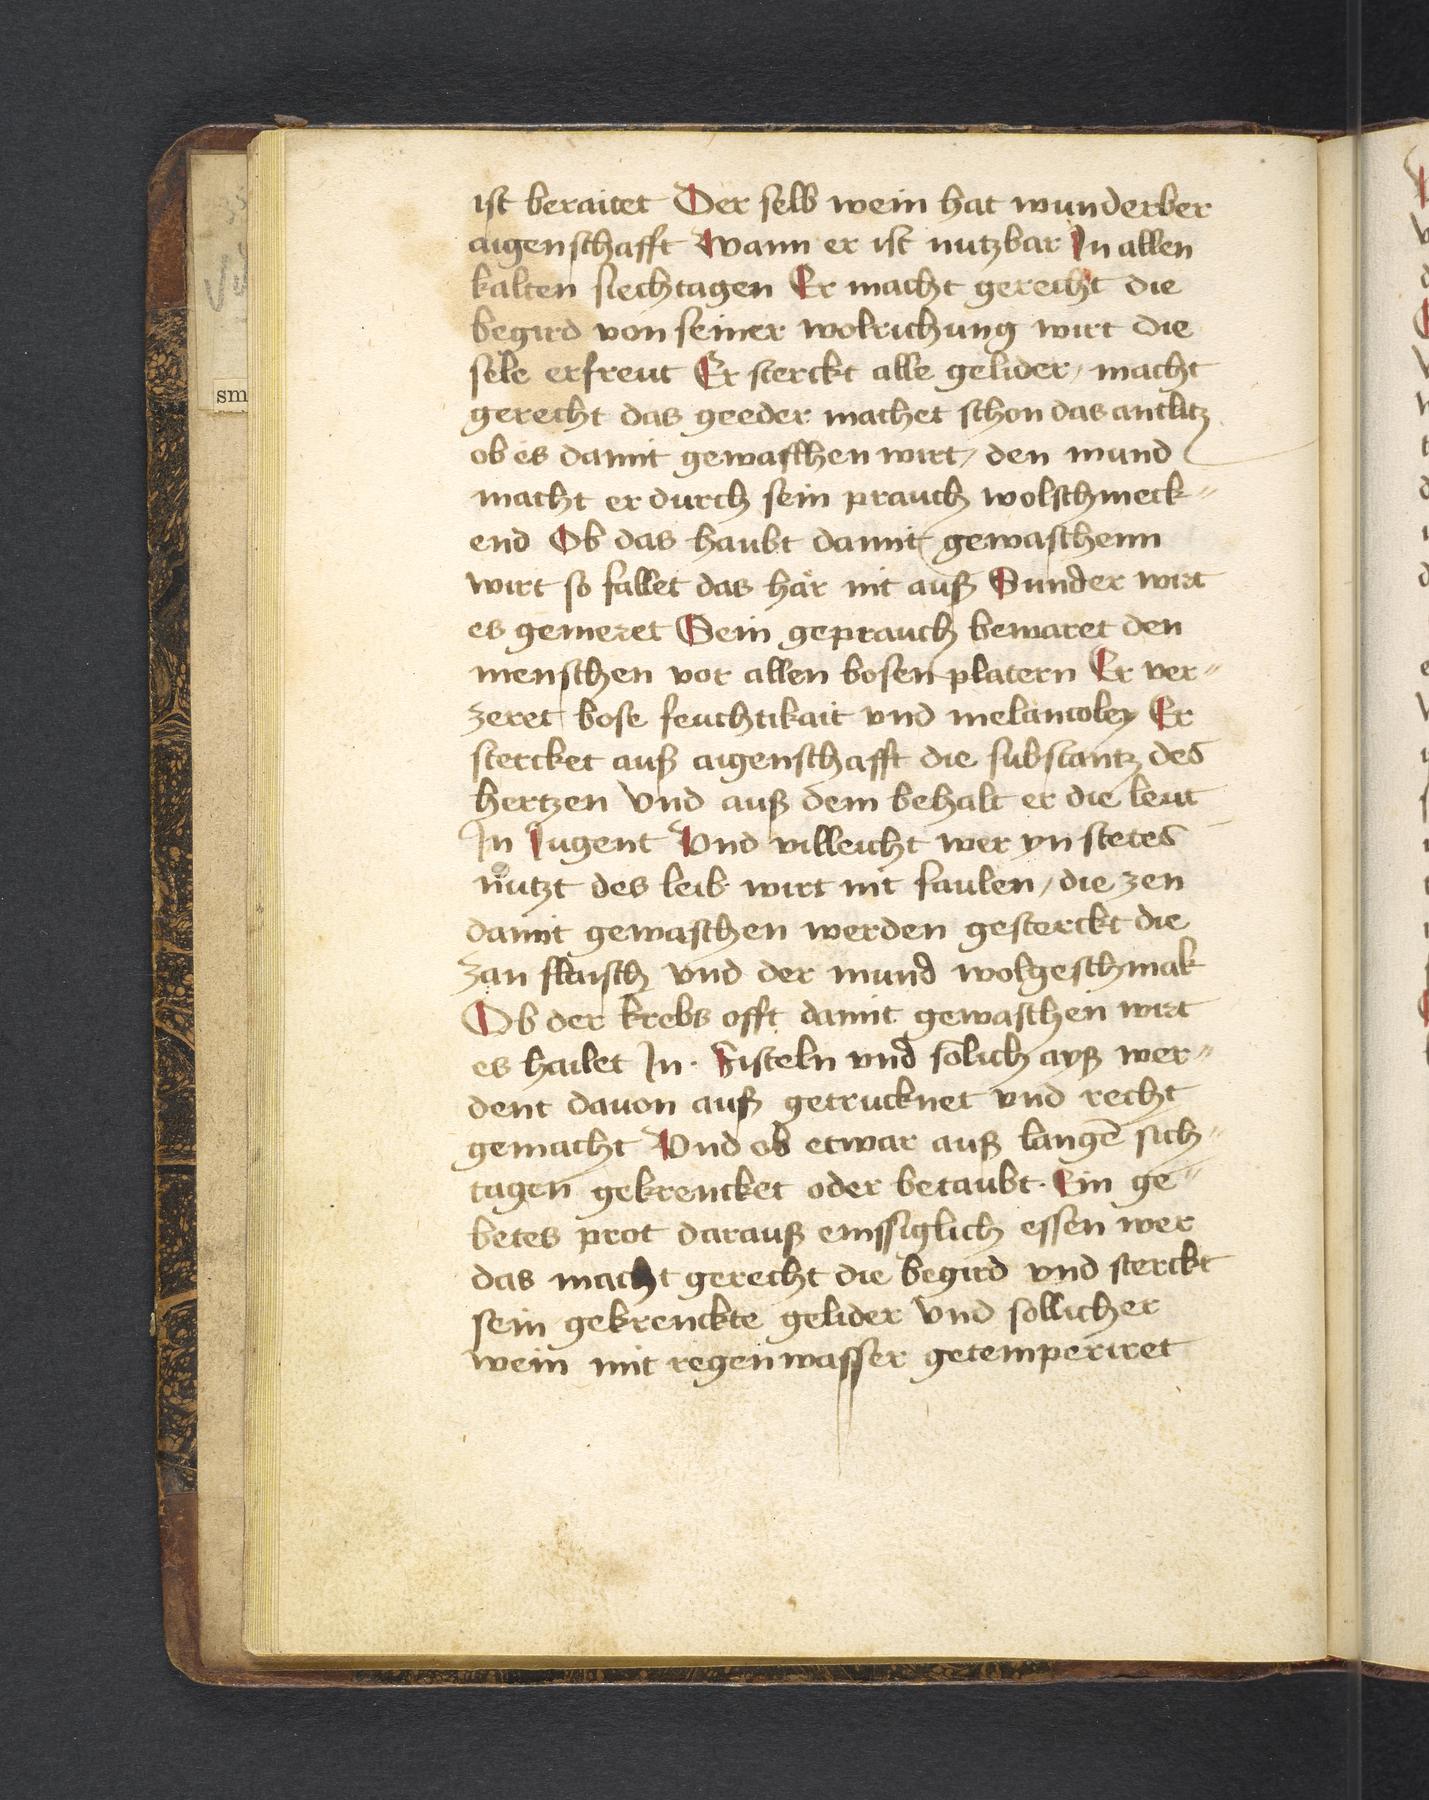 ist beraitet Der selb wein hat wunderber
aigenschafft Wann er ist nutzbar In allen
kalten siechtagen Er macht gerecht die
begird von seiner wolrichung wirt die
sele erfreut Er sterckt alle gelider / macht
gerecht das geeder machet schon das antlitz
ob es damit gewasschen wirt / den mund
macht er durch sein prauch wolschmeck-
end Ob das haubt damit gewaschenn
wirt so fallet das har nit auß Sunder wirt
es gemeret Sein geprauch bewaret den
menschen vor allen bosen platern Er ver-
zeret bose feuchtikait vnd melancoley Er
stercket auß aigenschafft die substantz des
hertzen Vnd auß dem behalt er die leut
In Iugent Vnd villeicht wer yn stetes
nutzt des leib wirt nit faulen / die zen
damit gewaschen werden gesterckt die
zan flaisch vnd der mund wolgeschmak
Ob der krebs offt damit gewaschen wirt
es hailet In · Fisteln vnd solich ayß wer-
dent dauon auß getrucknet vnd recht
gemacht Vnd ob etwar auß langē sich-
tagen gekrencket oder betaubt · Ein ge-
betes prot darauß emssiglich essen wer
das macht gerecht die begird vnd sterckt
sein gekrenckte gelider Vnd sollicher
wein mit regenwasser getemperiret
sm